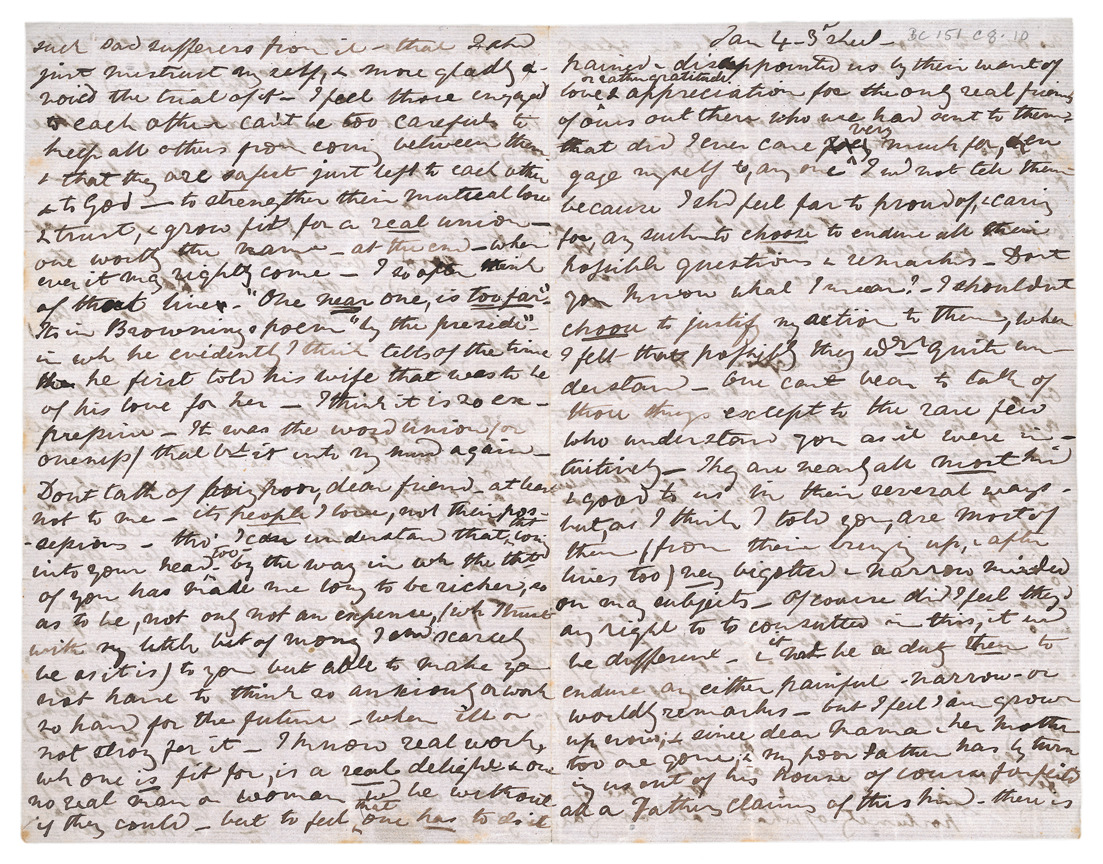 such sad sufferers from it - that I shd
just mistrust myself, & more gladly a-
void the trial of it - I feel those engaged
to each other can't be too careful to
keep all others from coming between them
& that they are safest just left to each other
& to God - to strengthen their mutual love
& trust, & grow fit for a real union -
one worthy the name - at the end - when
ever it may rightly come - I so often think
of that line - "One near one, is too far".
Its in Browning's poem "by the fireside" -
in wh he evidently I think tells of the time
he first told his wife that was to be
of his love for her - I think it is so ex-
- It was the word union (or
oneness) that bt it into my mind again -
Dont talk of being poor, dear friend - at least
not to me - its people I love, not their pos-
-sessions - tho' I can understand that, coming
into your head too - by the way in wh the thot
of you has made me long to be richer, so
as to be, not only not an expense, (wh I trust
with my little bit of money I shd scarcely
be as it is) to you but able to make you
not have to think so anxiously or work
so hard for the future - when ill or
not strong for it - I know real work,
wh one is fit for, is a real delight & one
no real man or woman wd be without
if they could - but to feel that one has to do it
Jan 4 - 3d sheet - BC 151 C8.10
pained - disappointed us by their want of
love & appreciation or rather gratitude for the only real friends
of ours out there who we had sent to them -
that did I ever care very much for, & en
gage myself to, any one I wd not tell them
because I shd feel far to proud of, & caring
for, any such to choose to endure all their
possible questions & remarks - Dont
you know what I mean? - I shouldnt
choose to justify my action to them, when
I felt that possibly they wdn't quite un-
derstand - One cant bear to talk of
those things except to the rare few
who understand you as it were in-
tuitively - They are nearly all most kind
& good to us in their several ways -
but, as I think I told you, are most of
them (from their bringing up, & after
lives too) very bigotted & narrow minded
on many subjects - Of course did I feel they'd
any right to to consulted in this, it wd
be different - it wd be a duty then to
endure any either painful - narrow - or
worldly remarks - but I feel I am grown
up now, & since dear Mama & her mother
too are gone, & my poor Father has by turn
ing us out of his house of course forfeited
all a Father's claims of this kind - there is